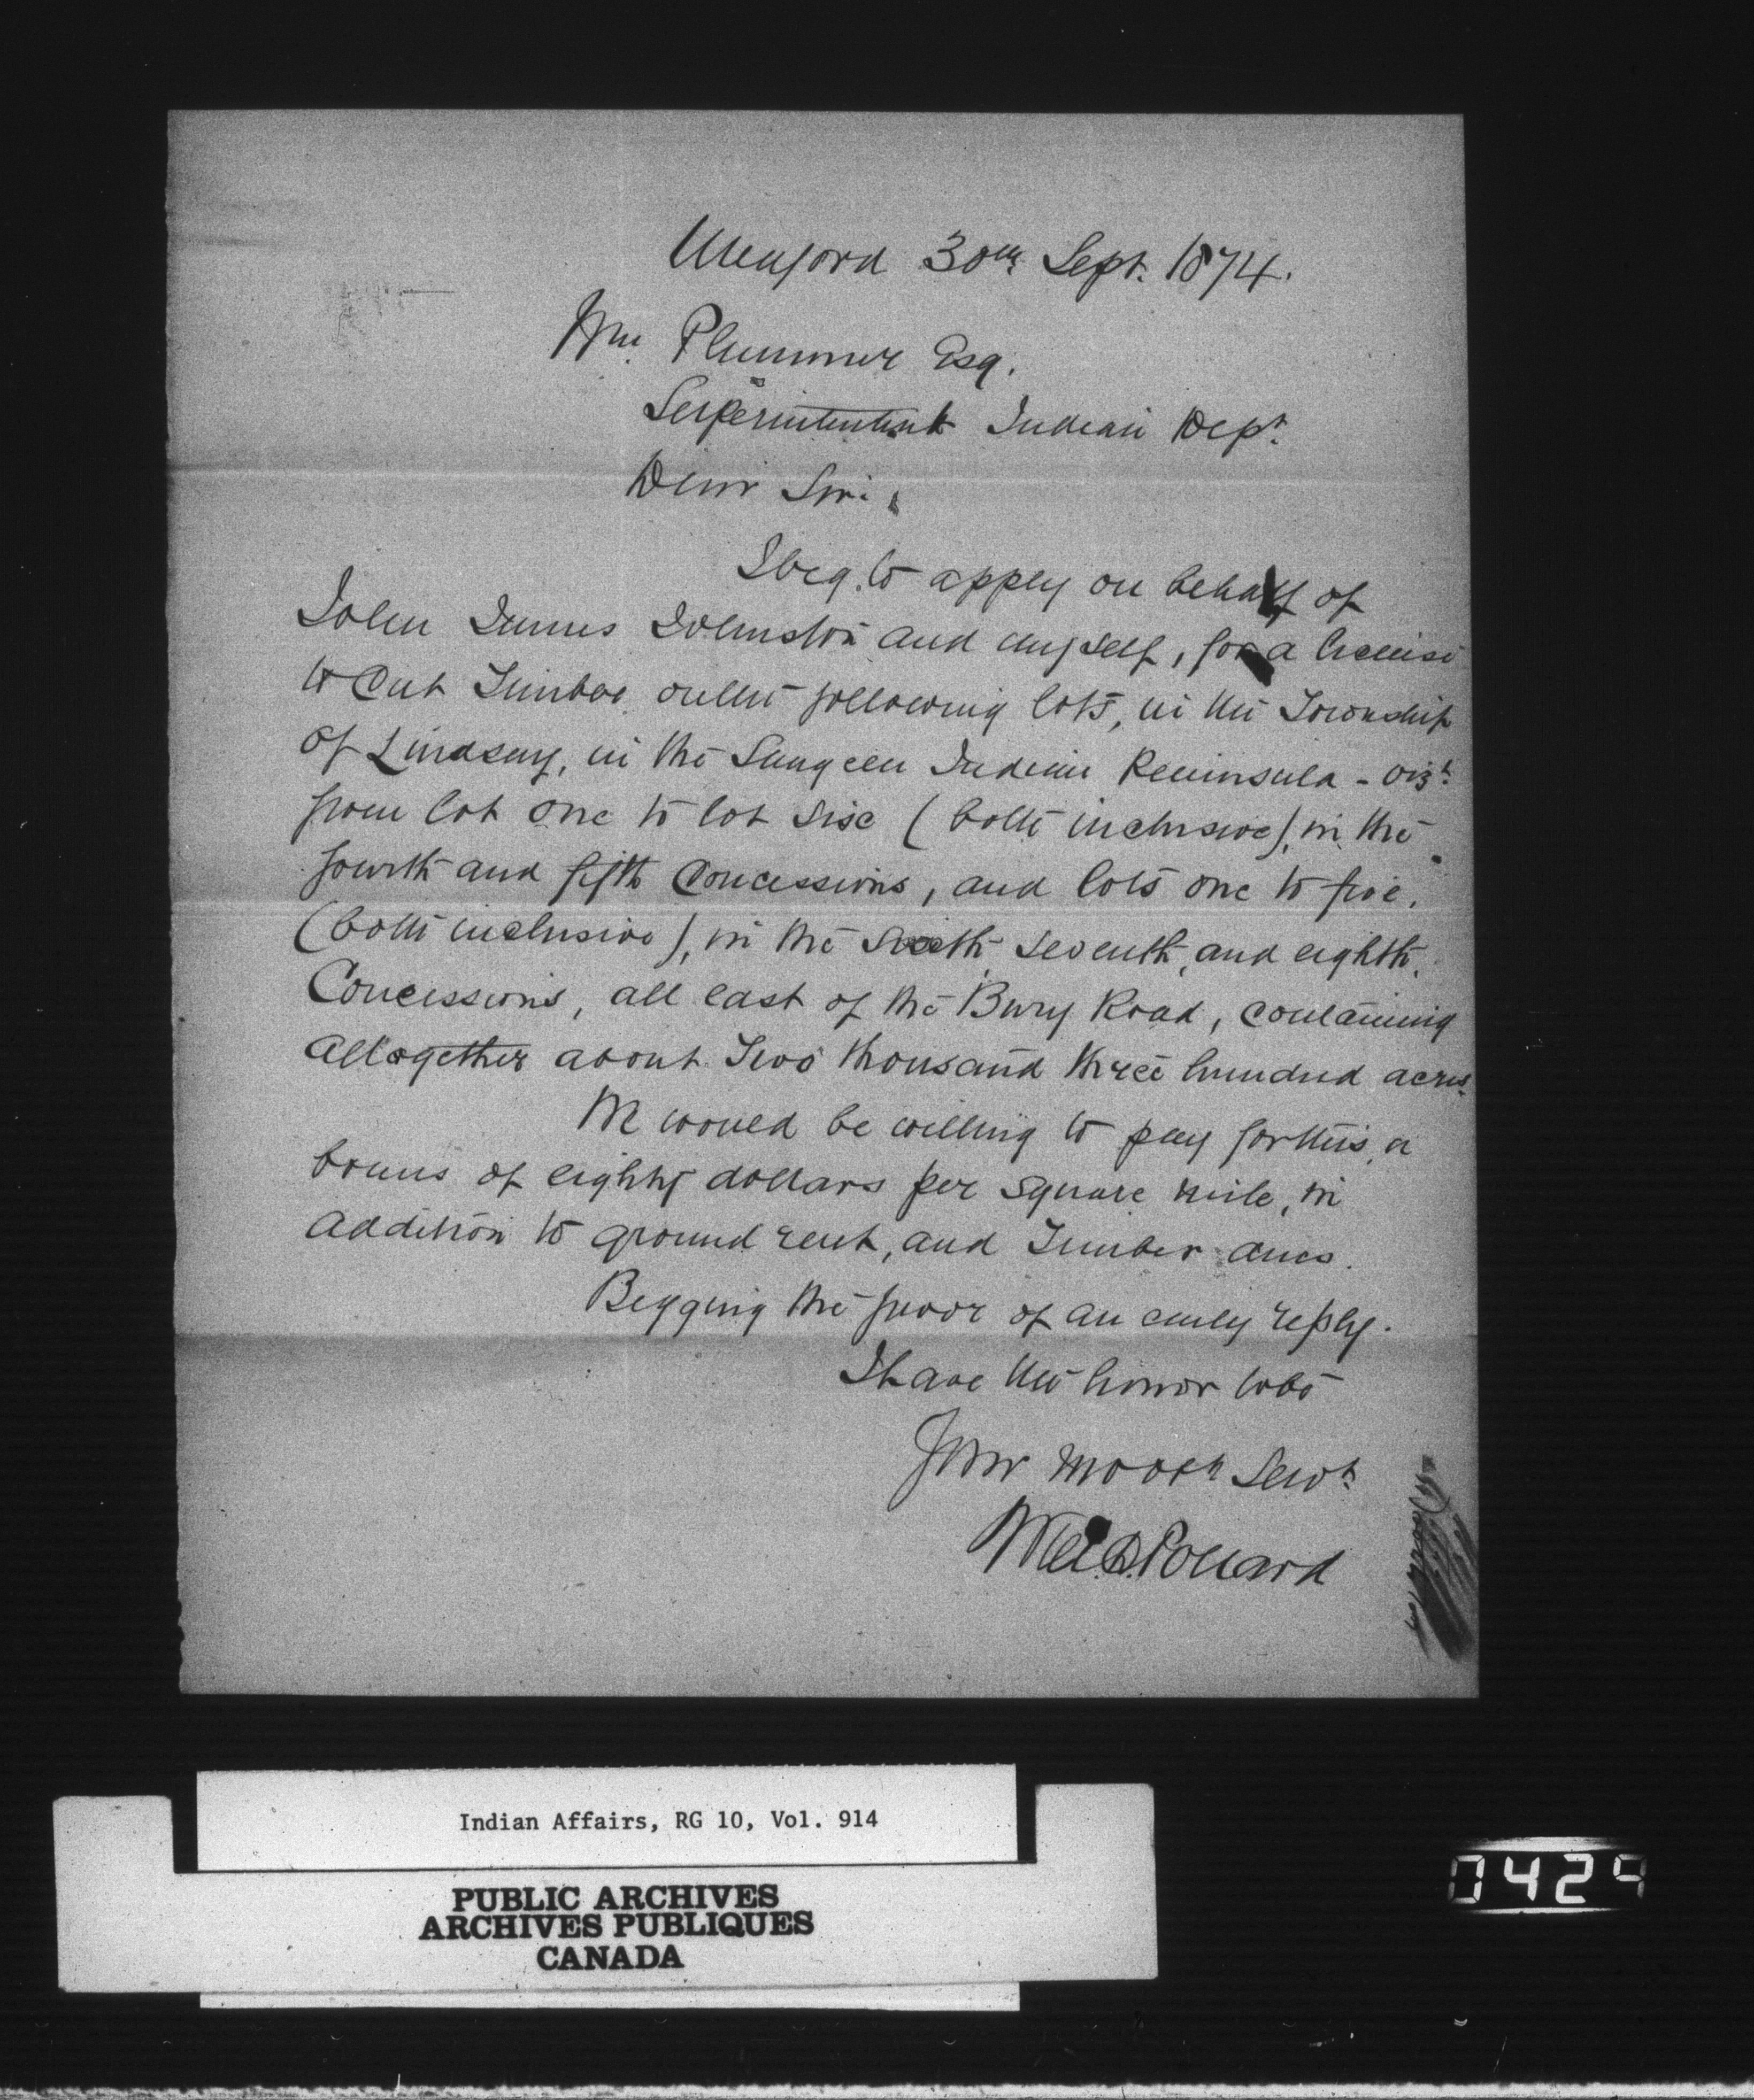 Meaford 30th Sept. 1874.
Wm. Plummer Esq.
Superintendent Indian Dept.
Dear Sir:
I beg to apply on behalf of
John James Johnston and myself, for a license
to Cut Timber on the following lots, in the Township
of Lindsay, in the Saugeen Indian Peninsula - vizt:
from lot one to lot six (both inclusive), in the
fourth and fifth Concessions, and lots one to five,
(both inclusive), in the sixth seventh, and eighth,
Concessions, all east of the Bury Road, containing
altogether about Two thousand three hundred acres.
We would be willing to pay for this, a
bonus of eighty dollars per square mile, in
addition to ground rent, and Timber dues.
Begging the favor of an early reply.
I have the honor to be
Your most Servt.
Pollard
Indian Affairs, RG 10, Vol. 914
PUBLIC ARCHIVES
ARCHIVES PUBLIQUES
CANADA
0429